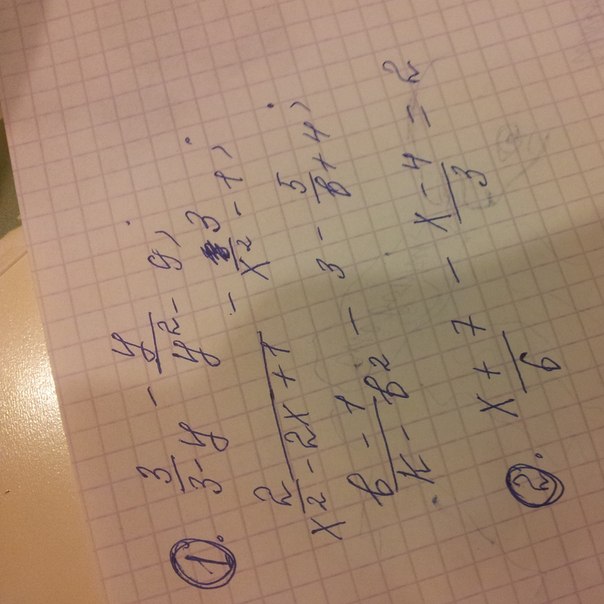 1. \frac{3}{3-y} - \frac{y}{y^2-9};
\frac{2}{x^2-2x+1} - \frac{3}{x^2-1};
\frac{в-1}{к-в^2} - 3 - \frac{5}{в+4};
2. \frac{x+7}{6} - \frac{x-4}{3} = 2